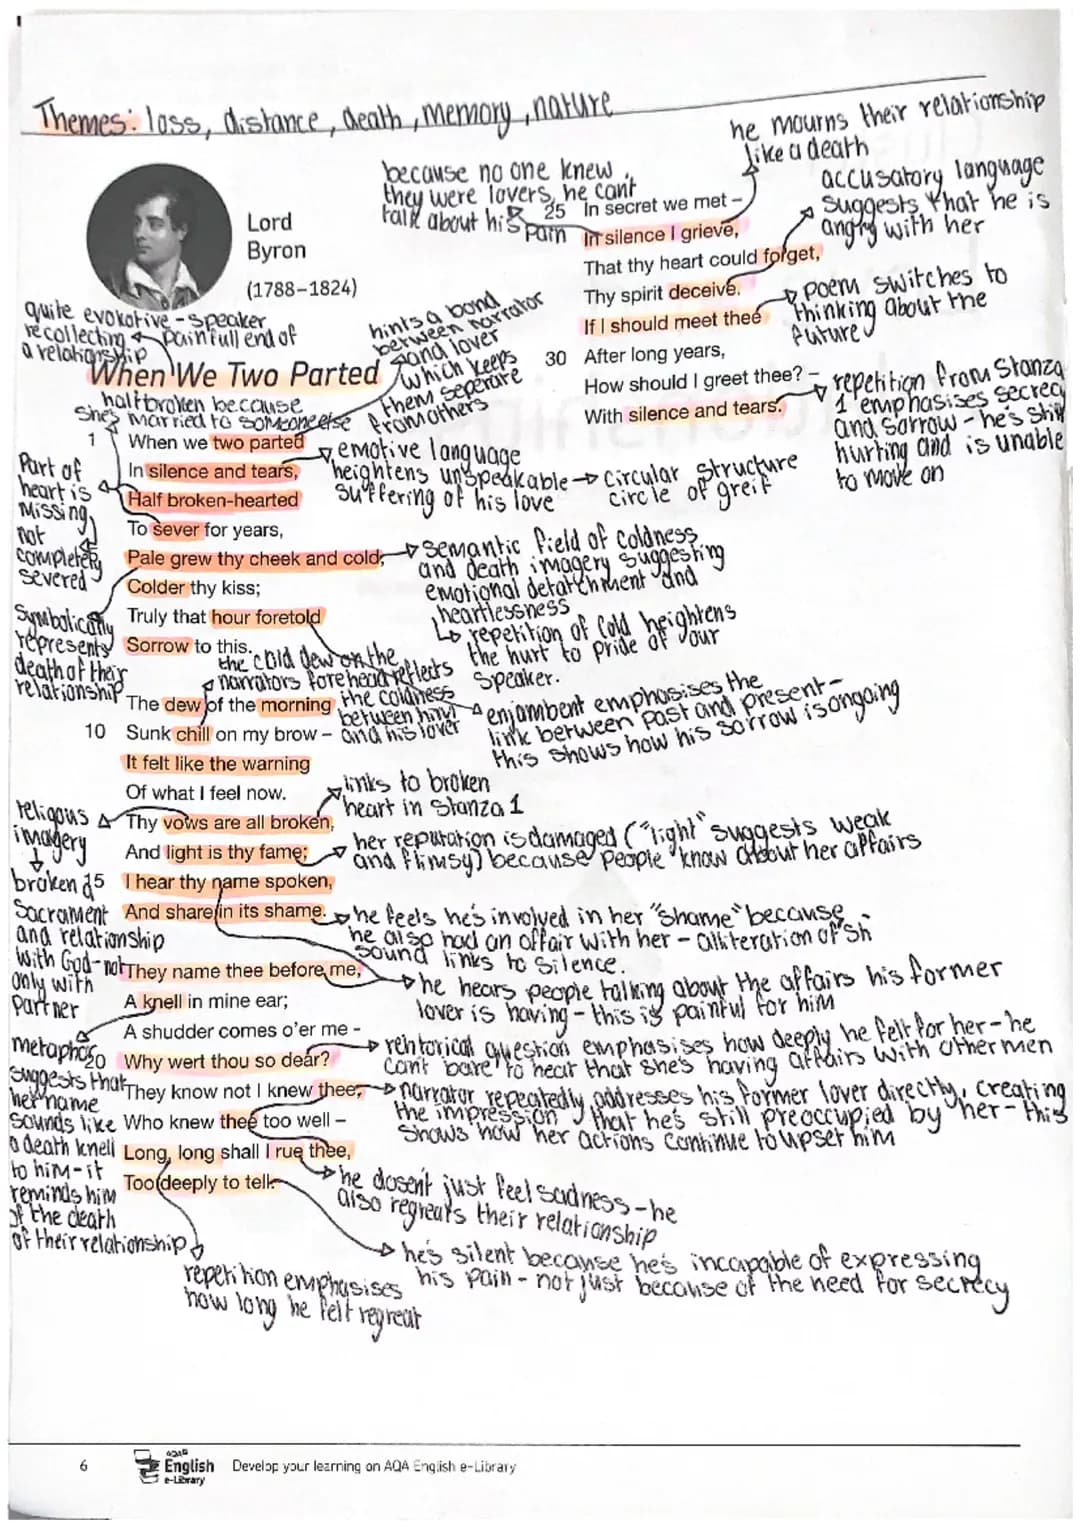 Themes: loss, distance, death, memory, nature
he mourns their relationship
like a death
because no one knew
they were lovers, he cant
talk about his pain
accusatory language
suggests that he is
angry with her
Lord
Byron
(1788–1824)
25 In secret we met –
In silence I grieve,
That thy heart could forget,
Thy spirit deceive.
If I should meet thee
30 After long years,
How should I greet thee? –
With silence and tears.
poem switches to
thinking about the
future
repetition from Stanza
1 emphasises secrecy
and sorrow - he's still
hurting and is unable
to move on
quite evokotive - speaker
recollecting painfull end of
a relationship
hints a bond
between narrator
and lover
which keeps
them seperate
from others
When We Two Parted
halfbroken because
she's married to someone else
1 When we two parted
In silence and tears,
Half broken-hearted
To sever for years,
Pale grew thy cheek and cold,
Colder thy kiss;
Truly that hour foretold
Sorrow to this.
emotive language
heightens unspeakable
suffering of his love
circular structure
circle of greif
Part of
heart is
missing,
not
completely
severed
semantic field of coldness
and death imagery suggesting
emotional detatchment and
heartlessness
repetition of cold heightens
the hurt to pride of our
speaker.
Symbolically
represents
death of their
relationship
the cold dew on the
narrators forehead reflects
the coldness
between him
and his lover
The dew of the morning
10 Sunk chill on my brow –
It felt like the warning
Of what I feel now.
Thy vows are all broken,
And light is thy fame;
15 I hear thy name spoken,
And share in its shame.
enjambent emphasises the
link between past and present-
this shows how his sorrow is ongoing
links to broken
heart in stanza 1
her reputation is damaged ("light" suggests weak
and flimsy) because people know about her affairs
religous
imagery
broken
Sacrament
and relationship
with God-not
only with
partner
he feels he's involved in her "shame" because
he also had an affair with her - alliteration of sh
sound links to silence.
They name thee before me,
A knell in mine ear;
A shudder comes o'er me -
20 Why wert thou so dear?
They know not I knew thee,
Who knew thee too well –
Long, long shall I rue thee,
Too deeply to tell.
he hears people talking about the affairs his former
lover is having - this is painful for him
rehtorical question emphasises how deeply he felt for her - he
cant bare to hear that she's having affairs with other men
narrator repeatedly addresses his former lover directly, creating
the impression that he's still preoccupied by her - this
shows how her actions continue to upset him
metaphor
suggests that
her name
sounds like
a death knell
to him-it
reminds him
of the death
of their relationship
he dosent just feel sadness - he
also regreats their relationship
he's silent because he's incapable of expressing
his pain - not just because of the need for secrecy
repetition emphasises
how long he felt regreat
6
AQA
English
e-Library
Develop your learning on AQA English e-Library